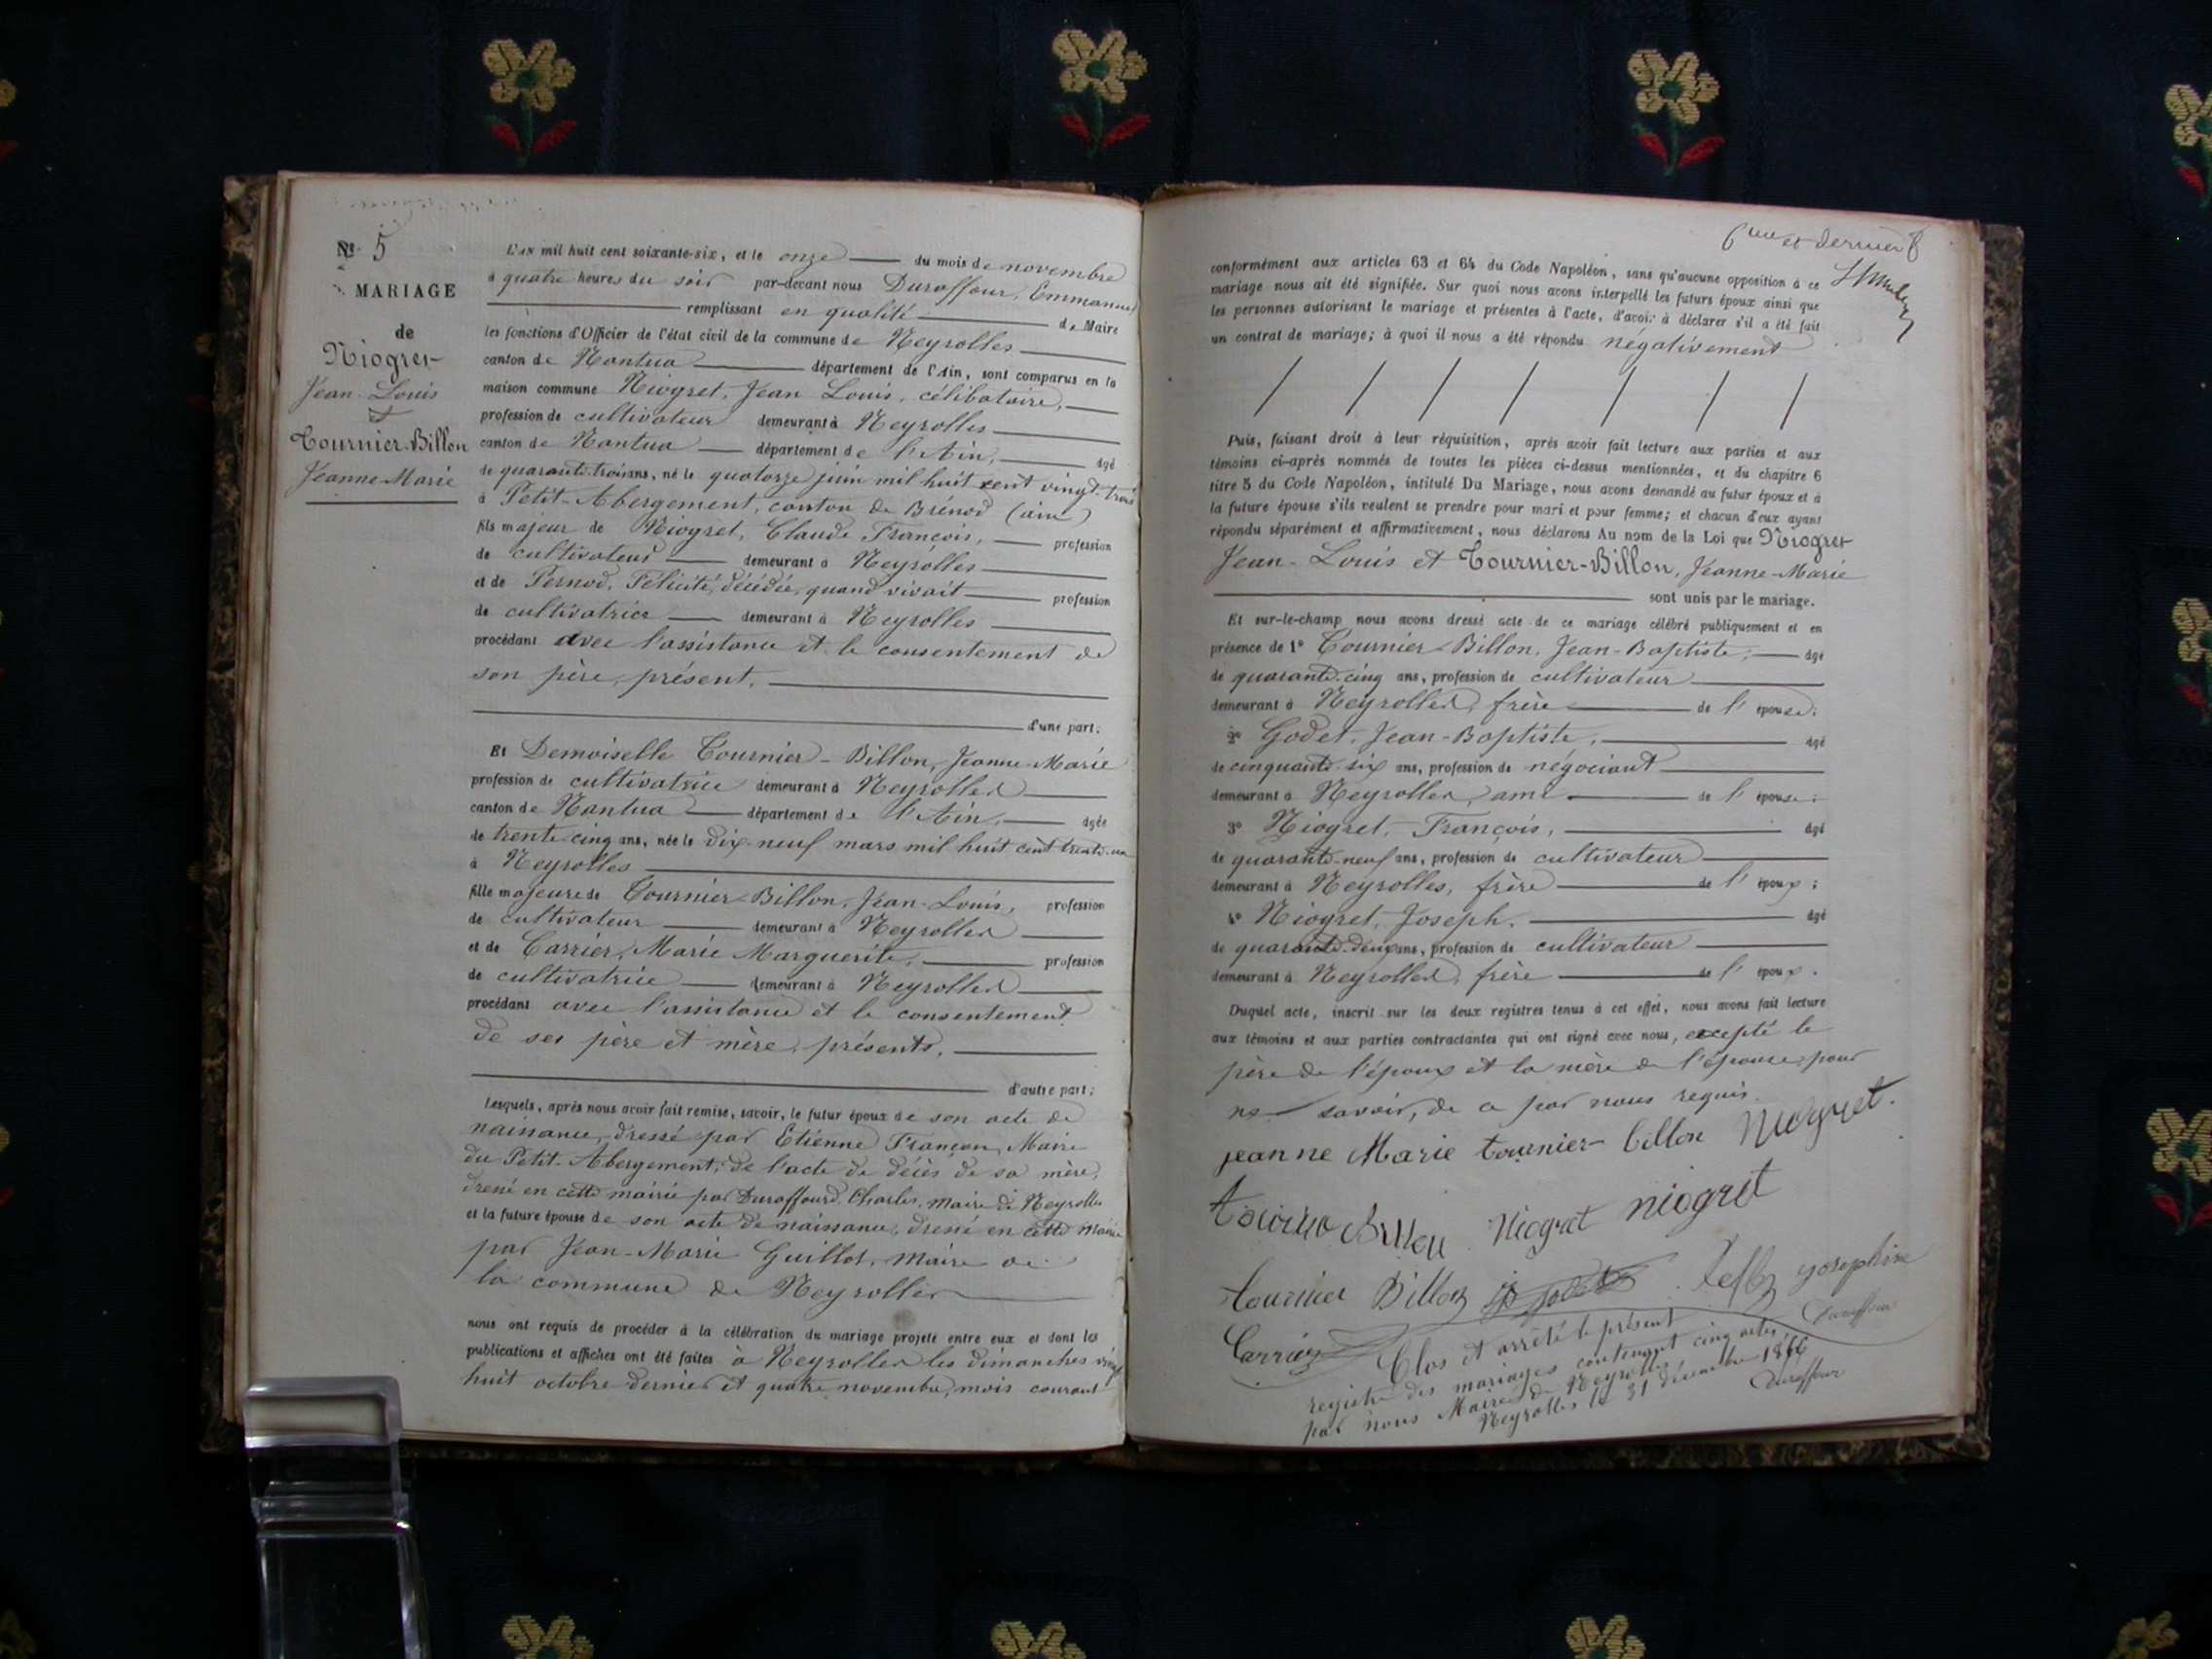 N° 5
MARIAGE
de
Niogret
Jean-Louis
et
Tournier-Billon
Jeanne-Marie
L'AN mil huit cent soixante-six, et le onze du mois de novembre
à quatre heures du soir par-devant nous Duraffour, Emmanuel
remplissant en qualité de Maire
les fonctions d'Officier de l'état civil de la commune de Neyrolles
canton de Nantua département de l'Ain, sont comparus en la
maison commune Niogret, Jean Louis, célibataire,
profession de cultivateur demeurant à Neyrolles
canton de Nantua département de l'Ain, âgé
de quarante-trois ans, né le quatorze juin mil huit cent vingt-trois
à Petit-Abergement, canton de Brénod (ain)
fils majeur de Niogret, Claude François, profession
de cultivateur demeurant à Neyrolles
et de Pernod, Félicité, décédée, quand vivait profession
de cultivatrice demeurant à Neyrolles
procédant avec l'assistance et le consentement de
son père, présent,
d'une part;
Et Demoiselle Tournier-Billon, Jeanne-Marie
profession de cultivatrice demeurant à Neyrolles
canton de Nantua département de l'Ain, âgée
de trente-cinq ans, née le dix-neuf mars mil huit cent trente-un
à Neyrolles
fille majeure de Tournier-Billon, Jean-Louis, profession
de cultivateur demeurant à Neyrolles
et de Carrier, Marie Marguerite, profession
de cultivatrice demeurant à Neyrolles
procédant avec l'assistance et le consentement
de ses père et mère, présents,
d'autre part;
Lesquels, après nous avoir fait remise, savoir, le futur époux de son acte de
naissance, dressé par Etienne Françon, Maire
du Petit-Abergement; de l'acte de décès de sa mère,
dressé en cette mairie par Duraffourd, Charles, maire de Neyrolles
et la future épouse de son acte de naissance, dressé en cette mairie
par Jean-Marie Guillot, maire de
la commune de Neyrolles
nous ont requis de procéder à la célébration du mariage projeté entre eux et dont les
publications et affiches ont été faites à Neyrolles les dimanches vingt
huit octobre dernier et quatre novembre, mois courant
6me et dernier f
conformément aux articles 63 et 64 du Code Napoléon, sans qu'aucune opposition à ce
mariage nous ait été signifiée. Sur quoi nous avons interpellé les futurs époux ainsi que
les personnes autorisant le mariage et présentes à l'acte, d'avoir à déclarer s'il a été fait
un contrat de mariage; à quoi il nous a été répondu négativement
Puis, faisant droit à leur réquisition, après avoir fait lecture aux parties et aux
témoins ci-après nommés de toutes les pièces ci-dessus mentionnées, et du chapitre 6
titre 5 du Code Napoléon, intitulé Du Mariage, nous avons demandé au futur époux et à
la future épouse s'ils veulent se prendre pour mari et pour femme; et chacun d'eux ayant
répondu séparément et affirmativement, nous déclarons Au nom de la Loi que Niogret
Jean-Louis et Tournier-Billon, Jeanne-Marie
sont unis par le mariage.
Et sur-le-champ nous avons dressé acte de ce mariage célébré publiquement et en
présence de 1° Tournier-Billon, Jean-Baptiste, âgé
de quarante-cinq ans, profession de cultivateur
demeurant à Neyrolles, frère de l'épouse;
2° Godet, Jean-Baptiste, âgé
de cinquante-six ans, profession de négociant
demeurant à Neyrolles, ami de l'épouse;
3° Niogret, François, âgé
de quarante-neuf ans, profession de cultivateur
demeurant à Neyrolles, frère de l'époux;
4° Niogret, Joseph, âgé
de quarante-deux ans, profession de cultivateur
demeurant à Neyrolles, frère de l'époux.
Duquel acte, inscrit sur les deux registres tenus à cet effet, nous avons fait lecture
aux témoins et aux parties contractantes qui ont signé avec nous, excepté le
père de l'époux et la mère de l'épouse, pour
ne savoir, de ce par nous requis.
jeanne Marie tournier-billon Niogret.
Niogret niogret
tournier Billon josephine
Carrier Duraffour
Clos et arrêté le présent
registre des mariages contenant cinq actes,
par nous Maire de Neyrolles
Neyrolles le 31 décembre 1866
Duraffour